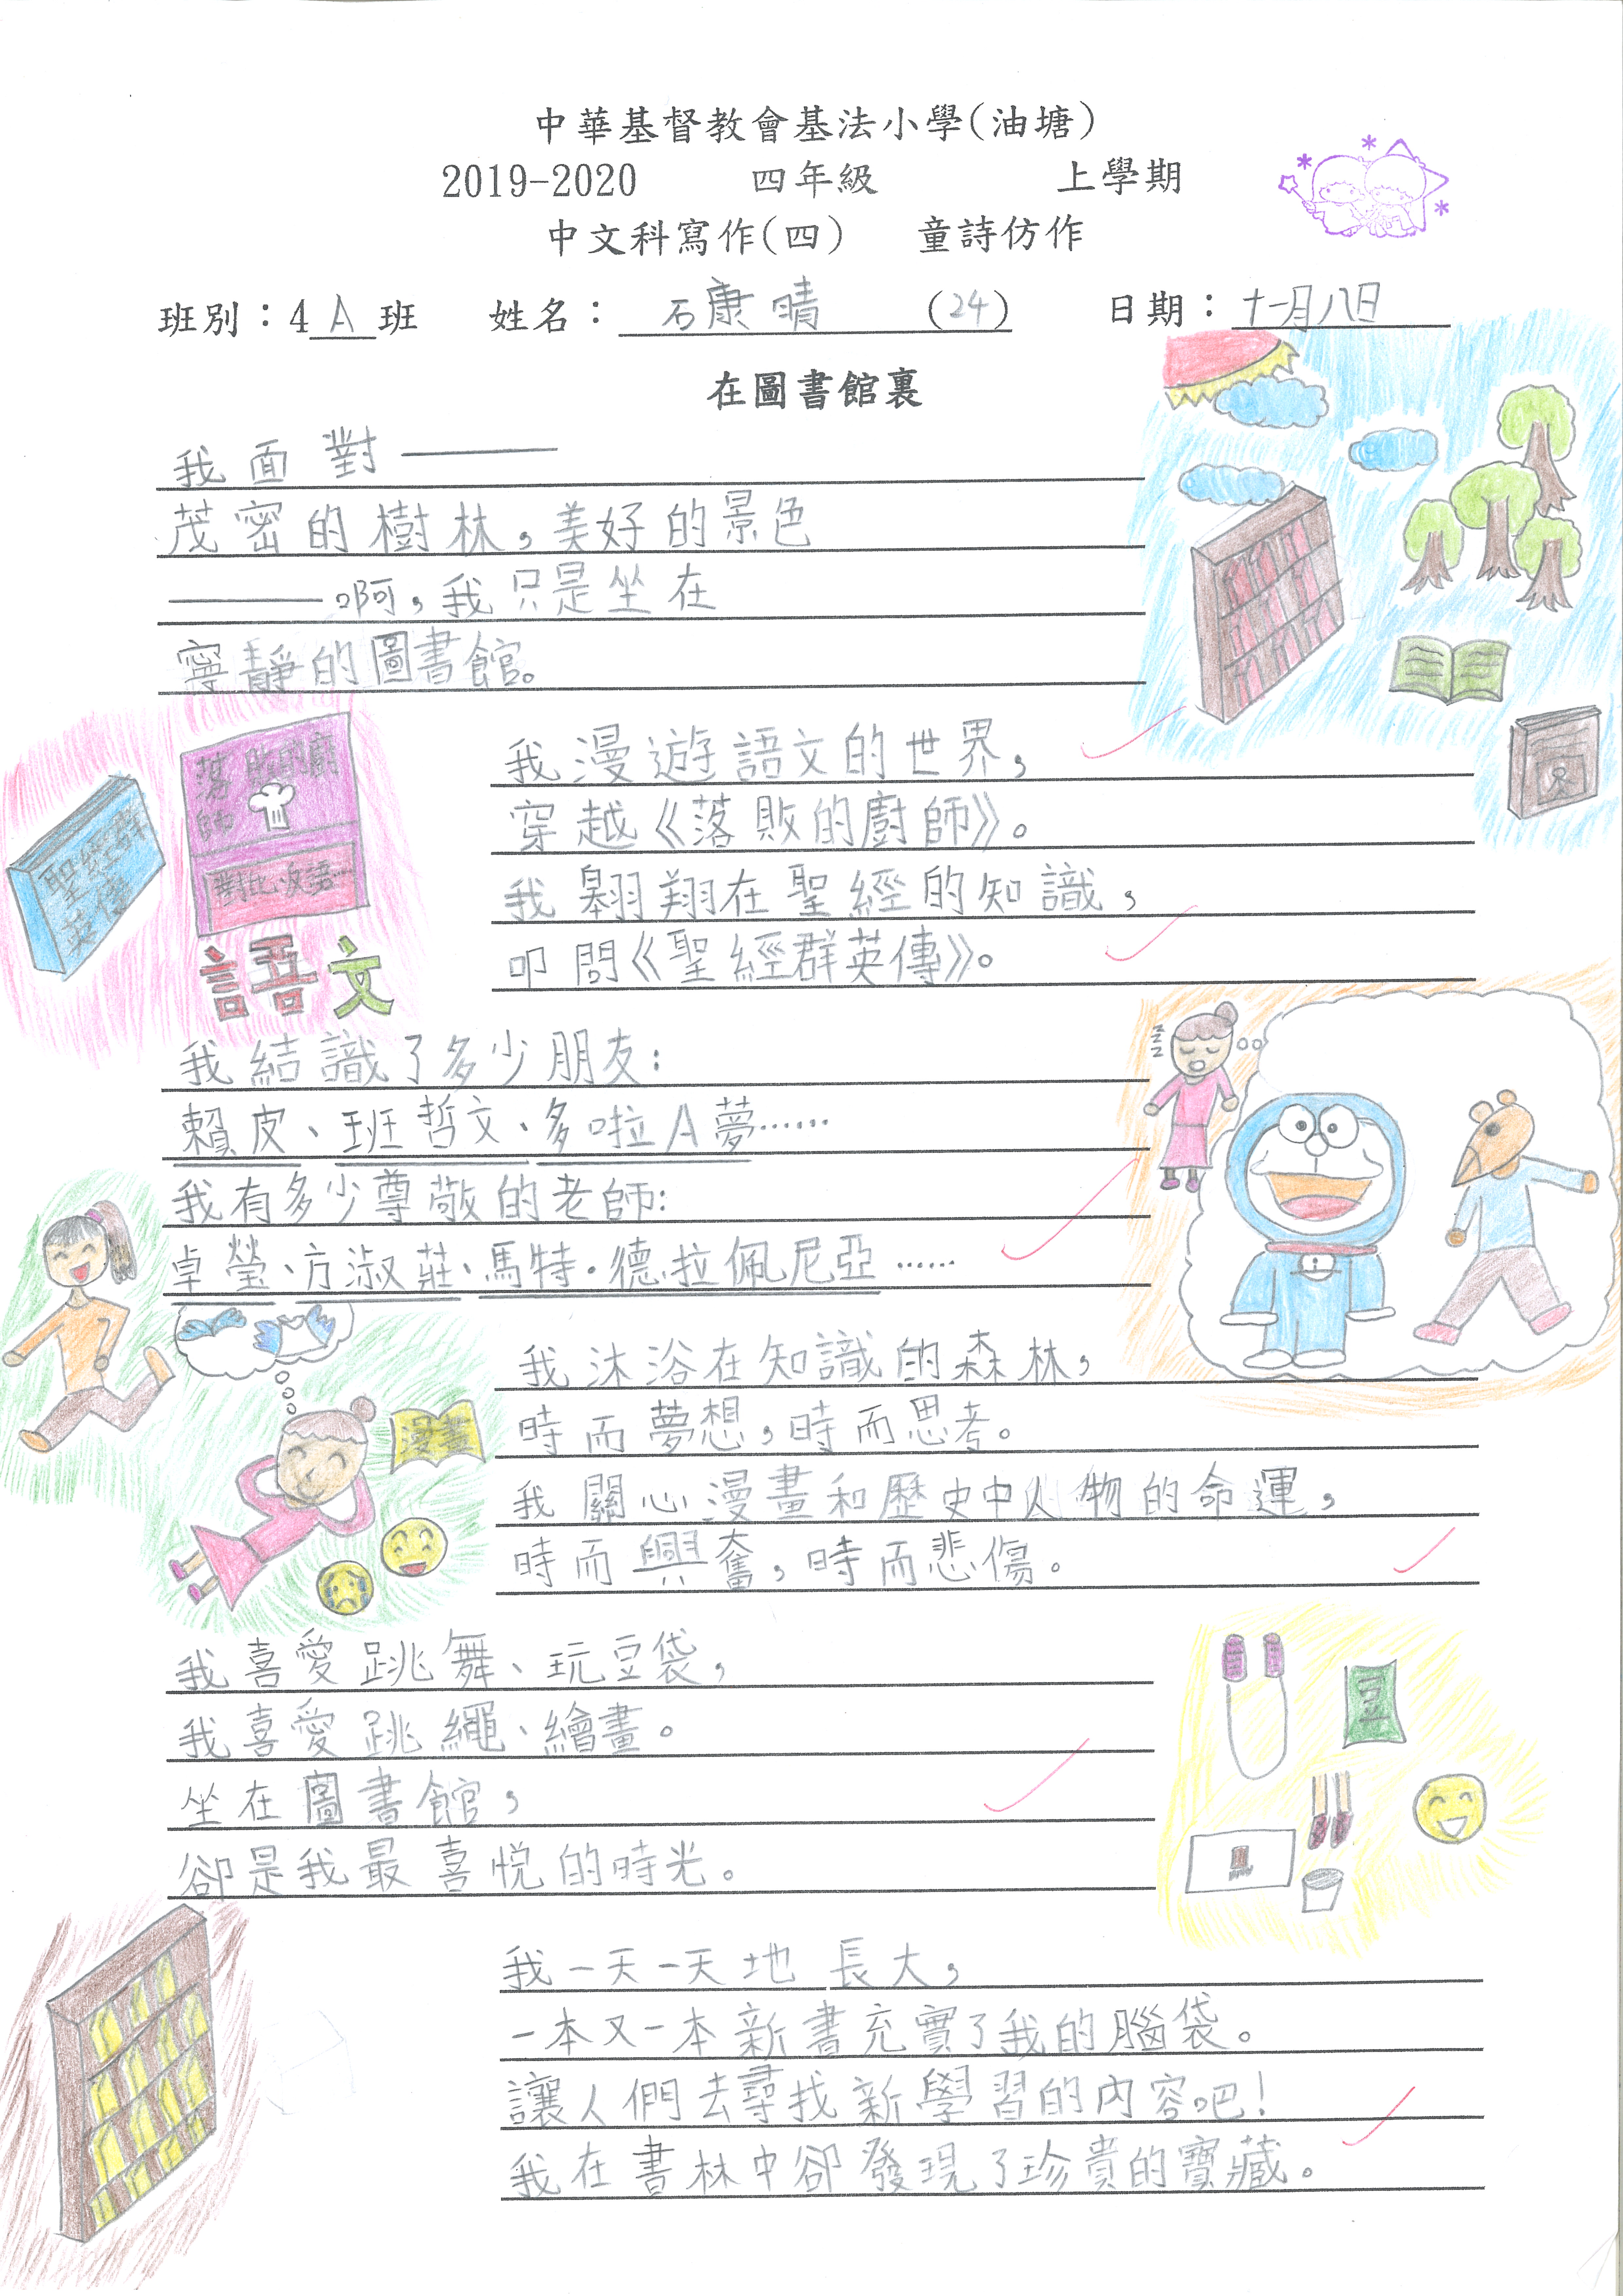 中華基督教會基法小學(油塘)
2019-2020 四年級 上學期
中文科寫作(四) 童詩仿作
班別：4 A 班 姓名：石康晴 (24) 日期：十一月八日
在圖書館裏
我面對——
茂密的樹林，美好的景色
——啊，我只是坐在
寧靜的圖書館。
我漫遊語文的世界，
穿越《落敗的廚師》。
我翱翔在聖經的知識，
叩問《聖經群英傳》。
聖經群英傳
落敗的廚師
對比.反語…
語文
我結識了多少朋友：
賴皮、班哲文、多啦A夢……
我有多少尊敬的老師：
卓瑩、方淑莊、馬特·德拉佩尼亞……
zzz
我沐浴在知識的森林，
時而夢想，時而思考。
我關心漫畫和歷史中人物的命運，
時而興奮，時而悲傷。
漫畫
我喜愛跳舞、玩豆袋，
我喜愛跳繩、繪畫。
坐在圖書館，
卻是我最喜悅的時光。
豆
我一天一天地長大，
一本又一本新書充實了我的腦袋。
讓人們去尋找新學習的內容吧！
我在書林中卻發現了珍貴的寶藏。